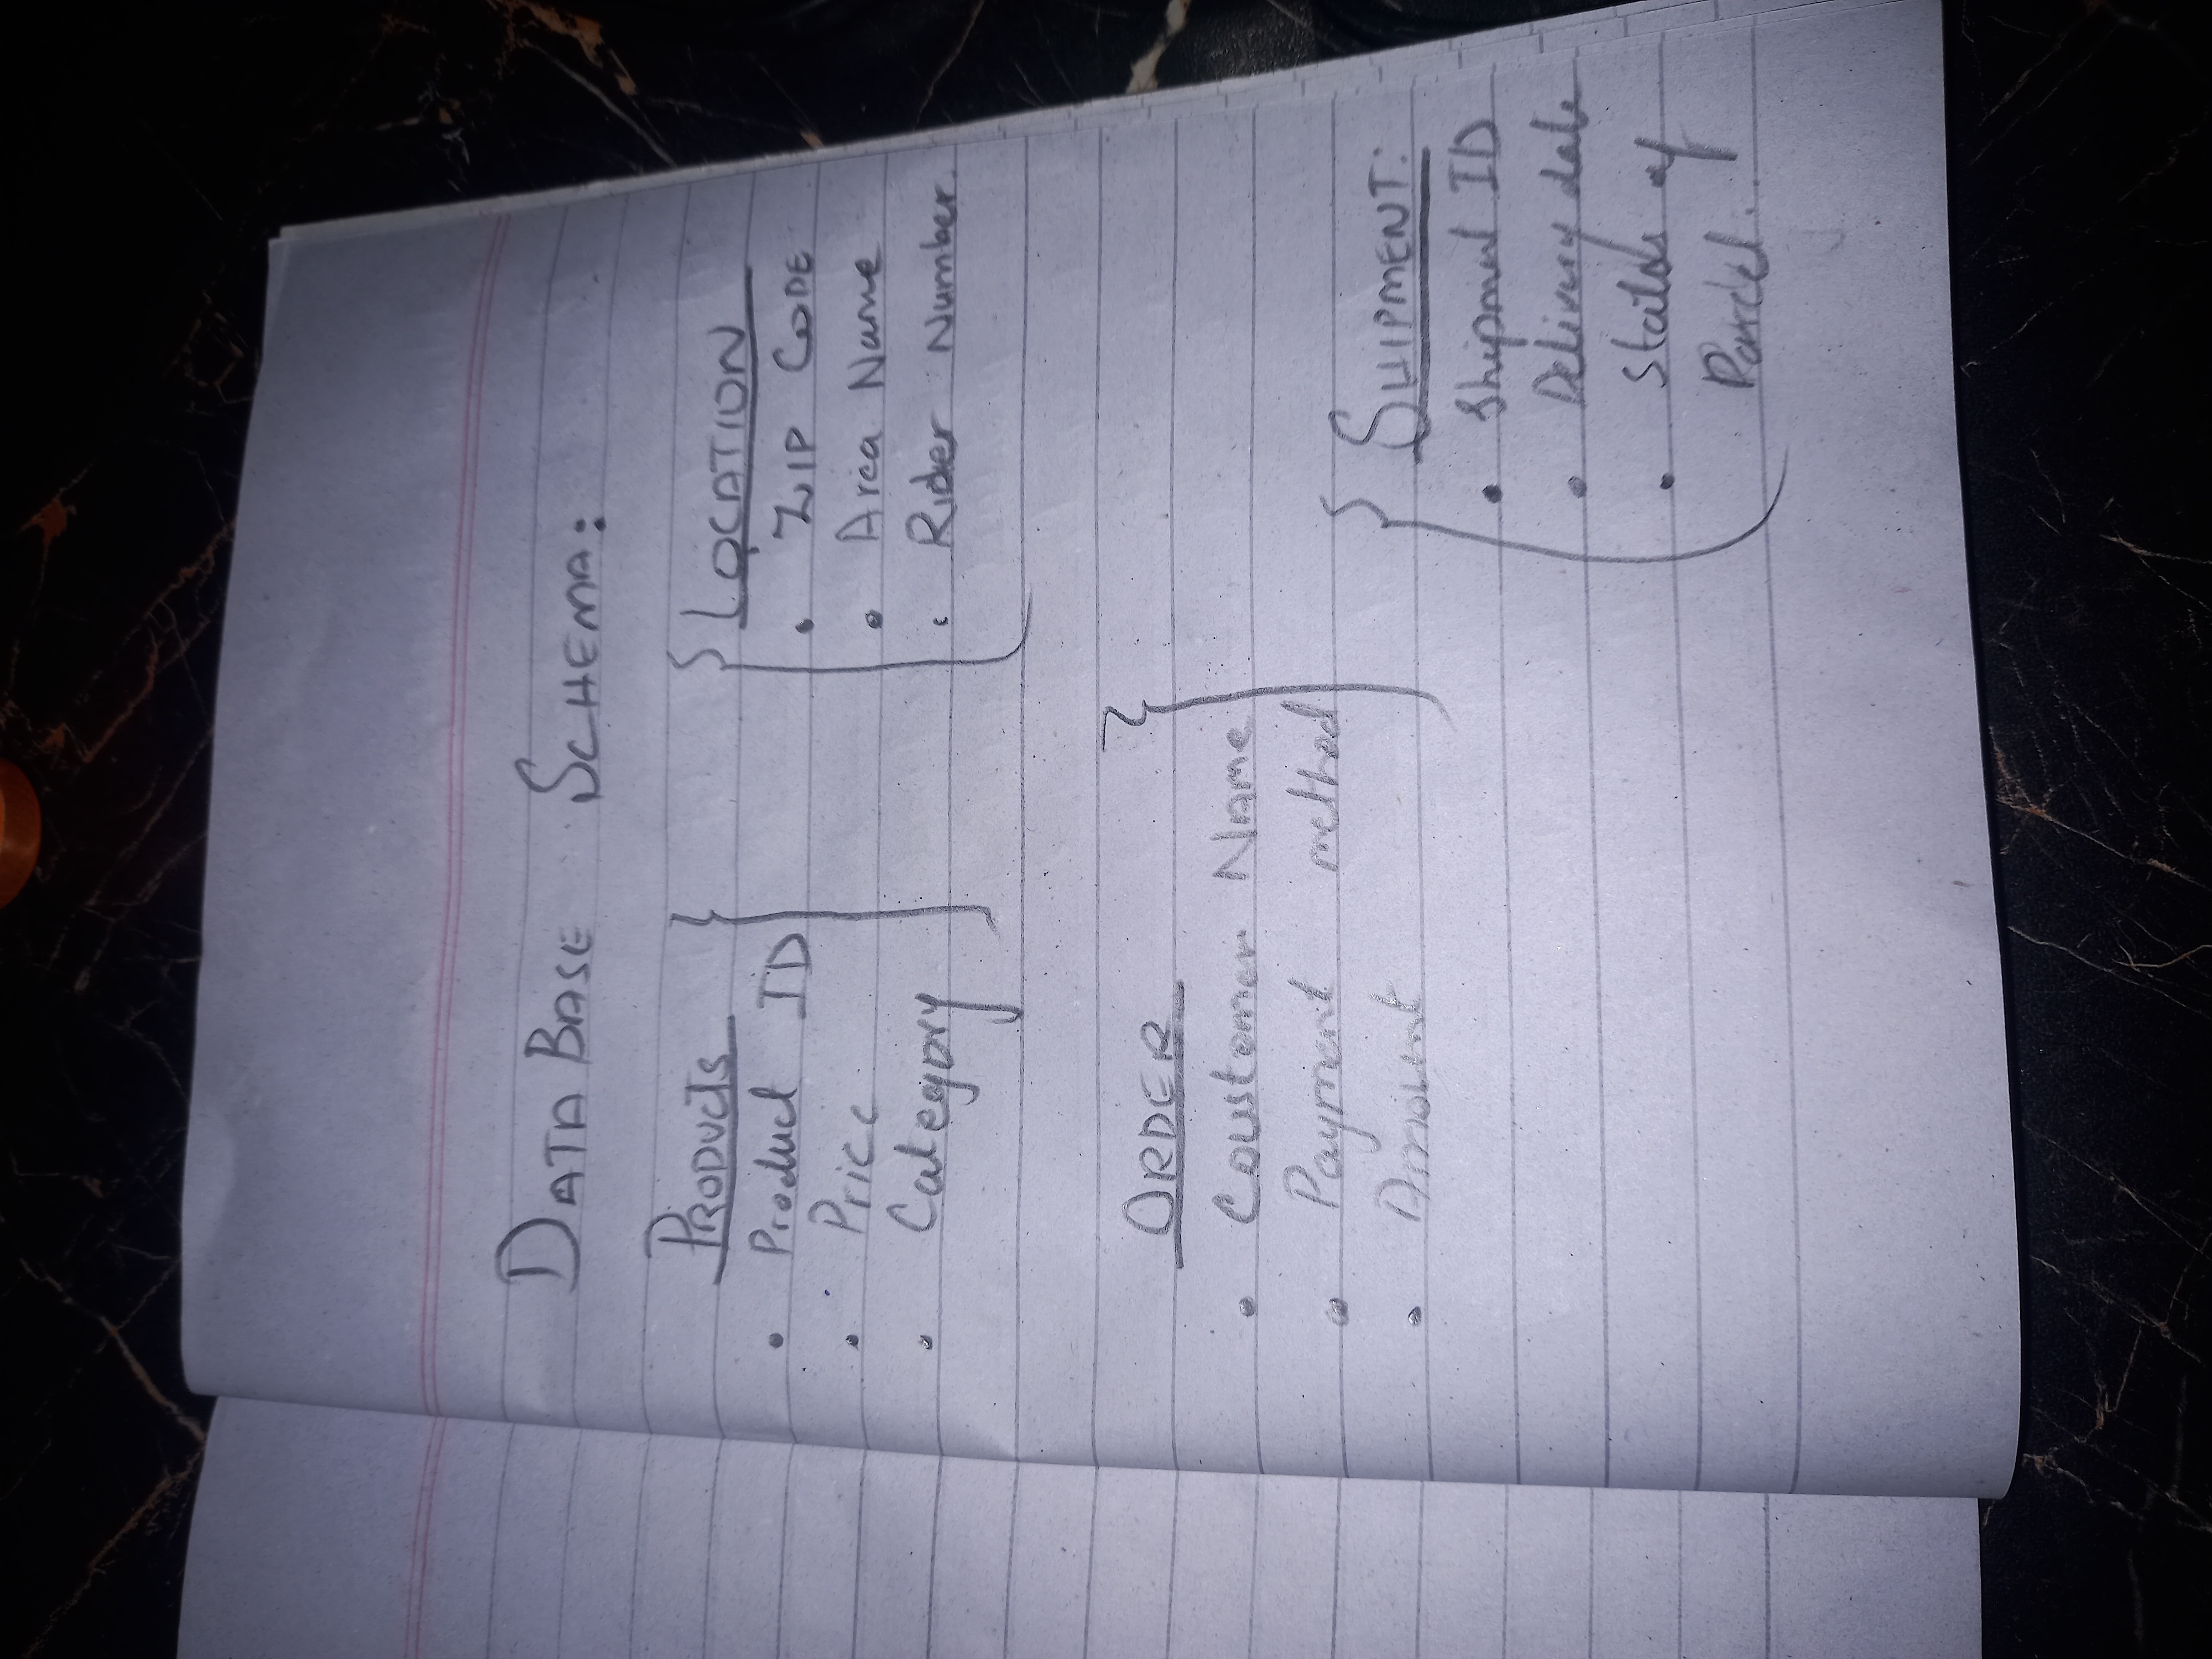 DATA BASE SCHEMA:
PRODUCTS
• Product ID
• Price
• Category
LOCATION
• ZIP CODE
• Area Name
• Rider Number.
ORDER
• Coustomer Name
• Payment method
• Amount
SHIPMENT:
• Shipment ID
• Delivery date
• Status of
Parcel.